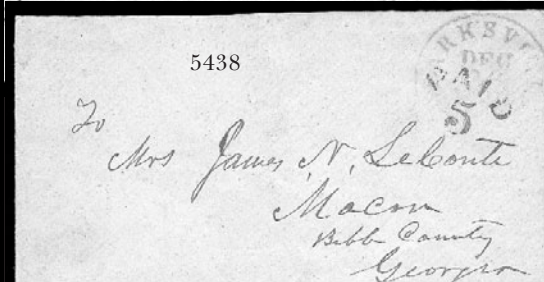 5438
DEC
PAID
5
To
Mrs James N. LeConte
Macon
Bibb County
Georgia